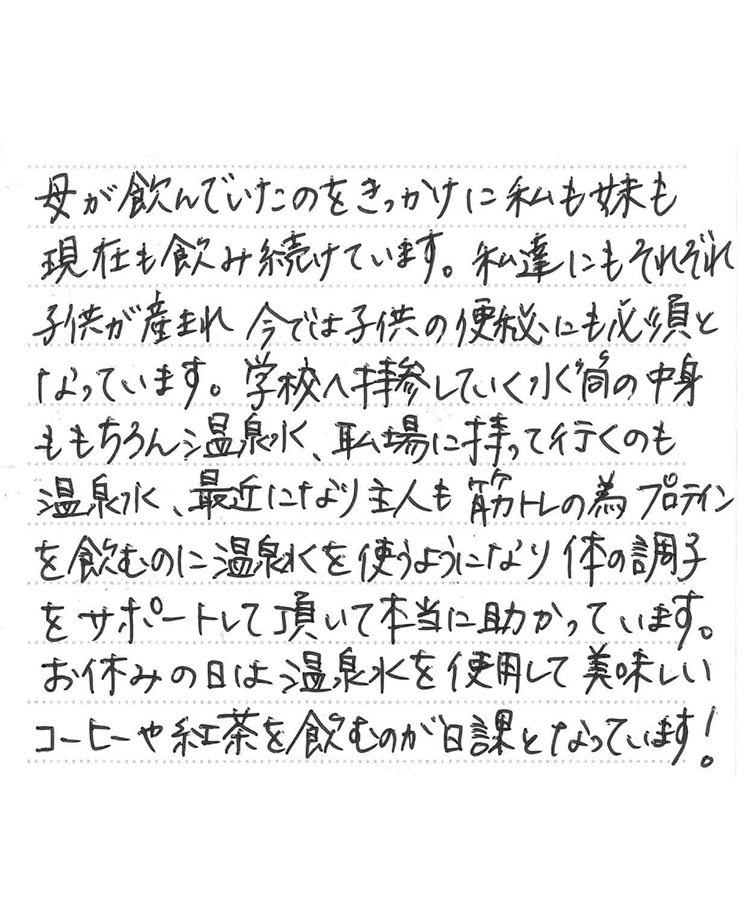 母が飲んでいたのをきっかけに私も妹も
現在も飲み続けています。私達にもそれぞれ
子供が産まれ今では子供の便秘にも必須と
なっています。学校へ持参していく水筒の中身
ももちろん温泉水、職場に持って行くのも
温泉水、最近になり主人も筋トレの為プロテイン
を飲むのに温泉水を使うようになり体の調子
をサポートして頂いて本当に助かっています。
お休みの日は温泉水を使用して美味しい
コーヒーや紅茶を飲むのが日課となっています!